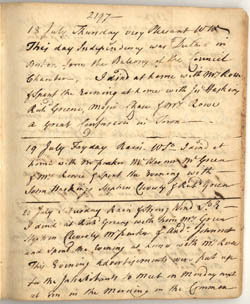 2197
18 July Thursday very Pleasant Wr
This day Independency was Declar'd in
Boston from the Balcony of the Council
Chamber. I dind at home with Mrs Rowe
& Spent the Evening at home with
Rich Green, Major Mrs Rowe
a great Confusion in Town
19 July Fryday Rain. I dind at
home with Mr Parker Mr Warner Mr Green
& Mrs Rowe & Spent the Evening with
John Stephen Cleverly & Rich Green
20 July
I dind at Rich Greens with him Mrs Green
Stephen Cleverly Mr Parker & Johonnot
and Spent the Evening at home with Mrs Rowe
This Evening Advertisements was put up
for the Inhabitants to meet on Monday next
at in the Morning in the Common